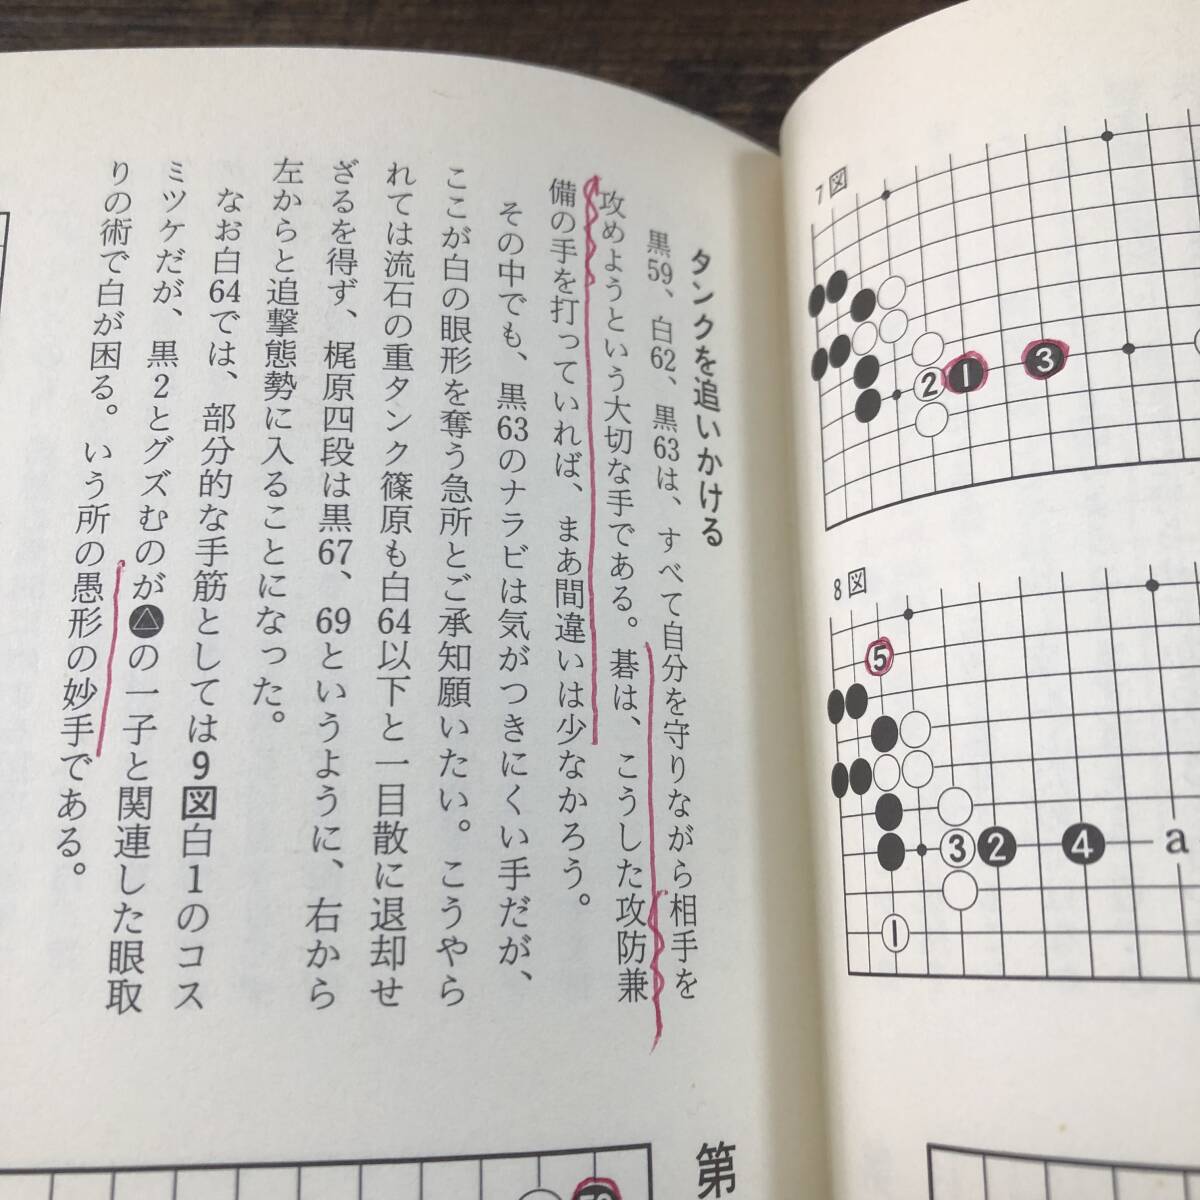 タンクを追いかける
黒59、白62、黒63は、すべて自分を守りながら相手を
攻めようという大切な手である。碁は、こうした攻防兼
備の手を打っていれば、まあ間違いは少なかろう。
その中でも、黒63のナラビは気がつきにくい手だが、
ここが白の眼形を奪う急所とご承知願いたい。こうやら
れては流石の重タンク篠原も白64以下と一目散に退却せ
ざるを得ず、梶原四段は黒67、69というように、右から
左からと追撃態勢に入ることになった。
なお白64では、部分的な手筋としては9図白1のコス
ミツケだが、黒2とグズむのが▲の一子と関連した眼取
りの術で白が困る。いう所の愚形の妙手である。
7図
2
1
3
8図
5
3
2
4
a
1
第